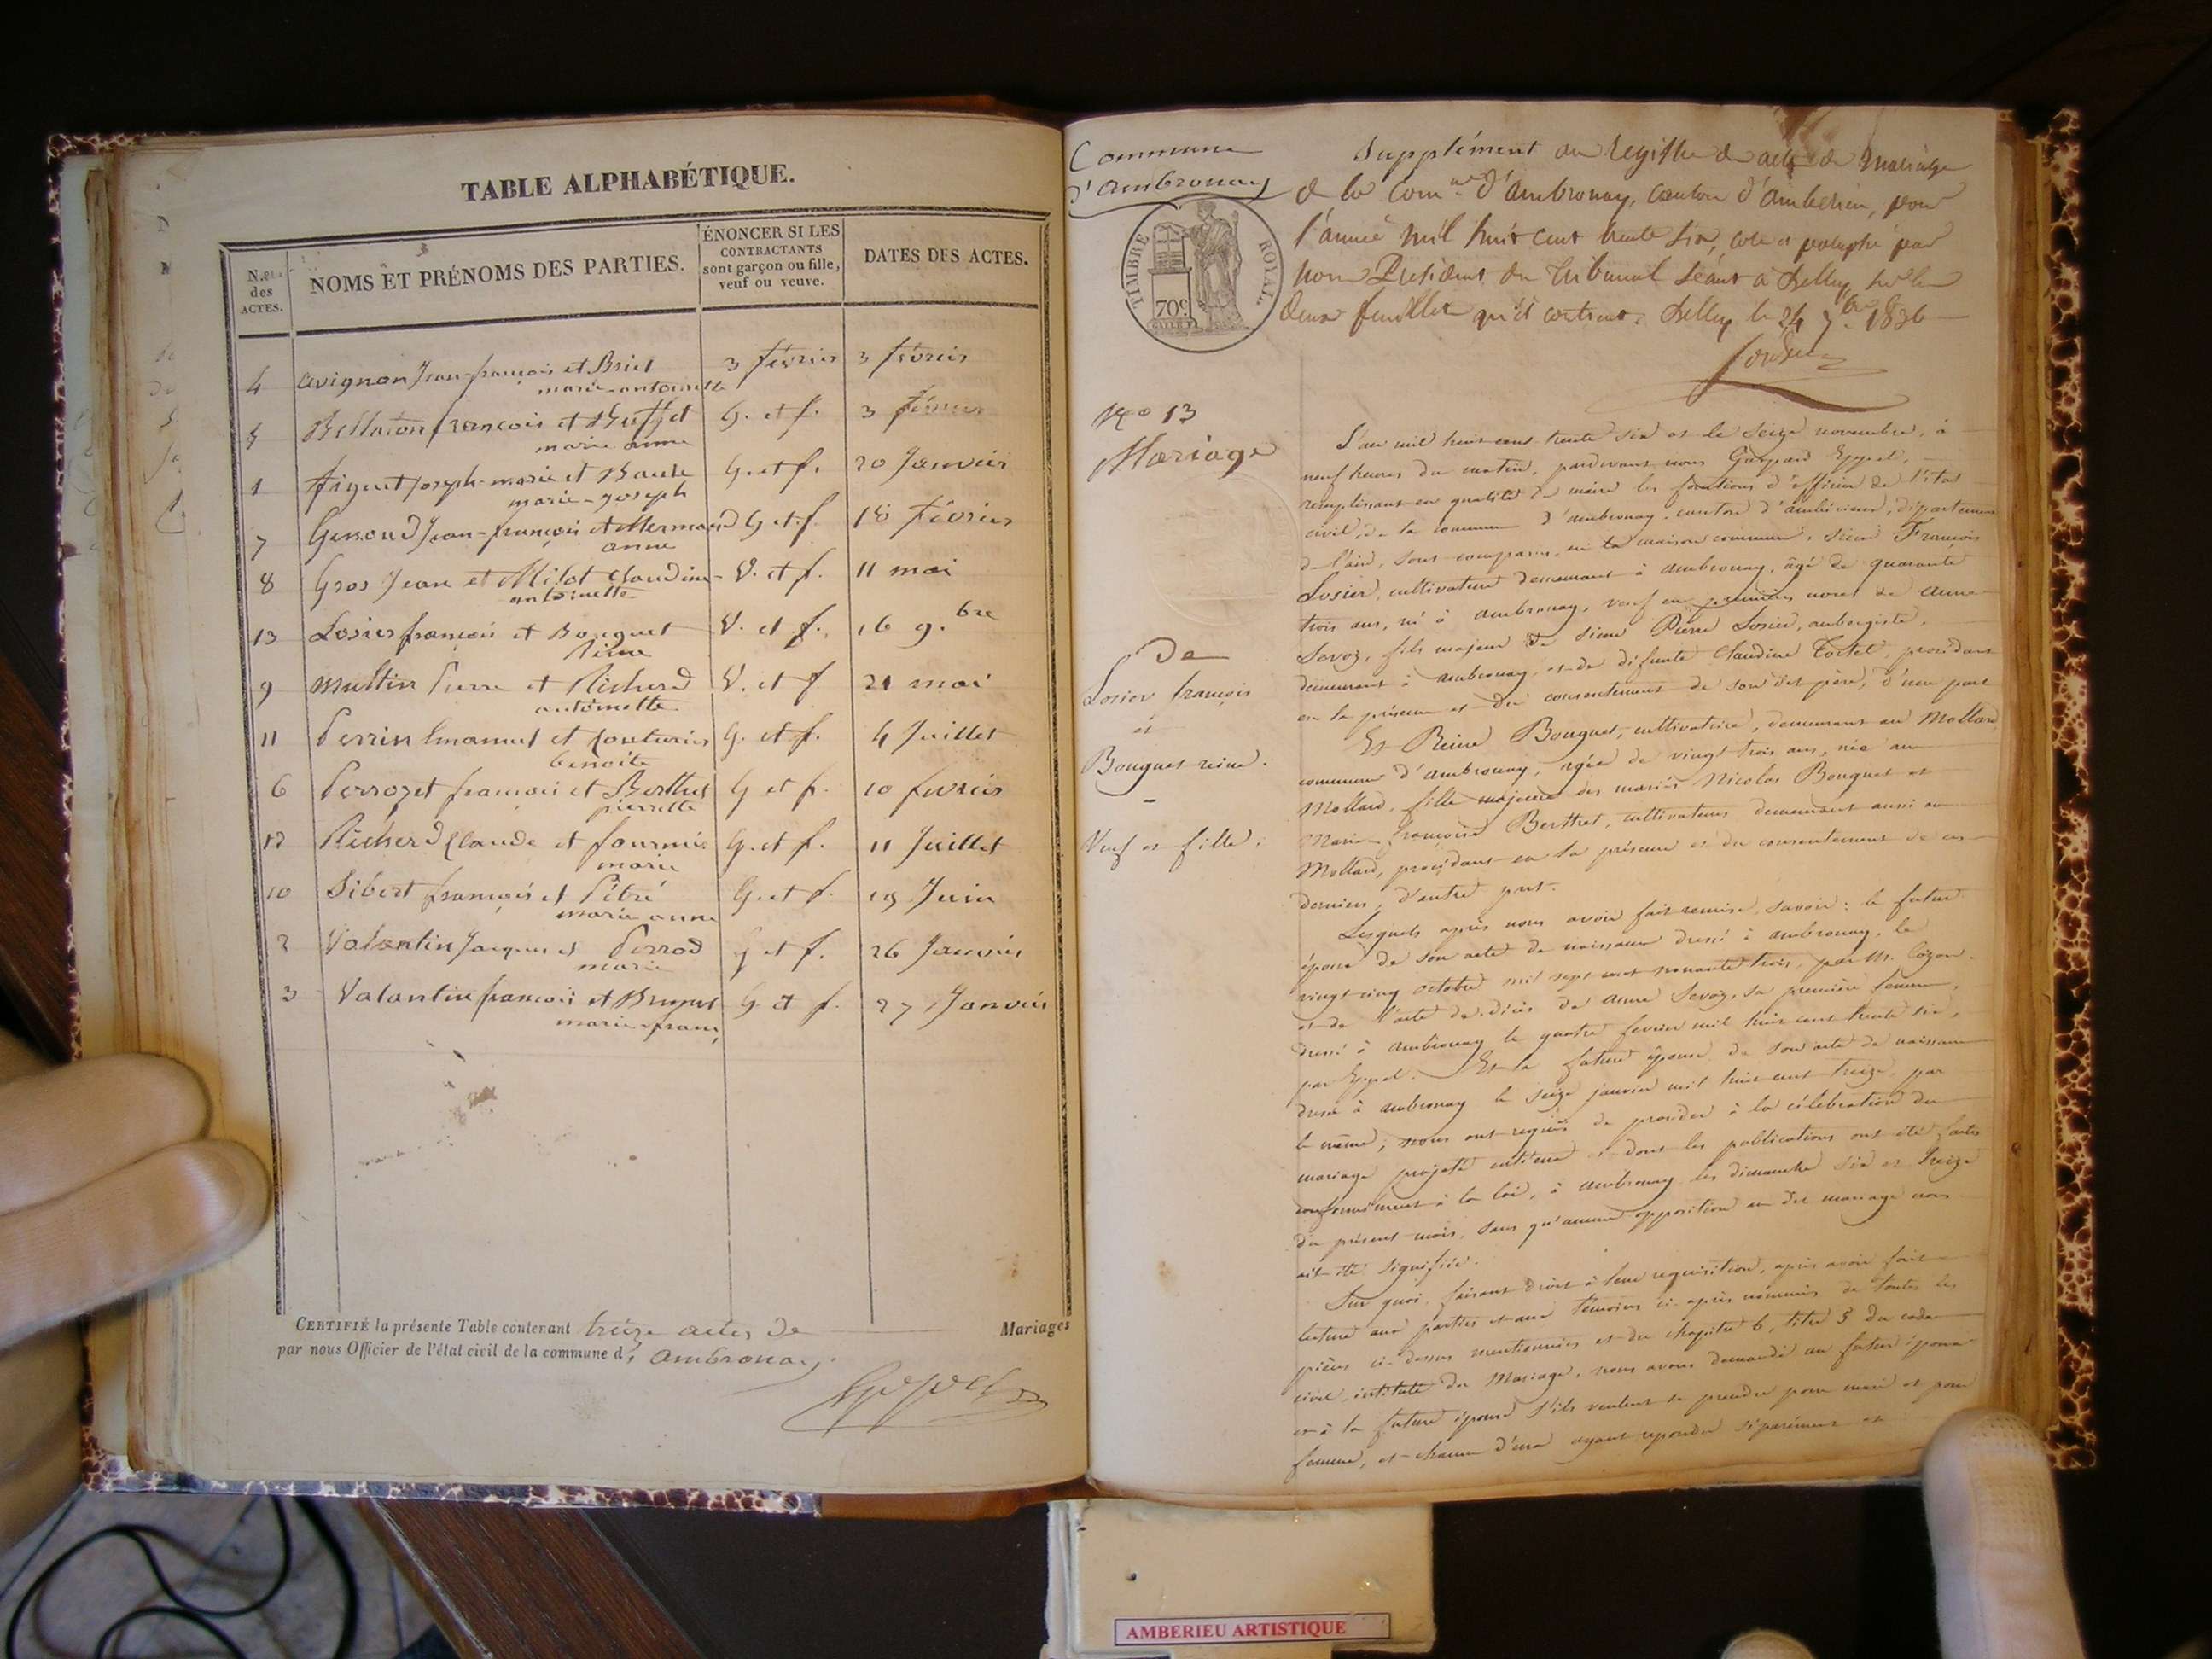 TABLE ALPHABÉTIQUE.
N.os des ACTES.
NOMS ET PRÉNOMS DES PARTIES.
ÉNONCER SI LES CONTRACTANTS sont garçon ou fille, veuf ou veuve.
DATES DES ACTES.
4 Avignon Jean-françois et Briel marie-antoinette 3 février 3 février
5 Bellaton françois et Buffet marie anne G. et f. 3 février
1 Joseph-marie et marie-joseph G. et f. 20 Janvier
7 Genoud Jean-françois et Mermand anne G et f. 18 février
8 Gros Jean et Milot Claudine-antoinette V. et f. 11 mai
13 Losier françois et Bouguet Reine V. et f. 16 9.bre
9 Pierre et Richerd antoinette V. et f 21 mai
11 Perrin Emanuel et Couturier benoite G. et f. 4 Juillet
6 Perrozet françois et Berthet pierrette G et f. 10 fevrier
12 Richerd Claude et fournier marie G. et f. 11 Juillet
10 Sibert françois et Pétré marie anne G. et f. 19 Juin
2 Valantin Jacques et Perrod marie G et f. 26 Janvier
3 Valantin françois et marie-franç G. et f. 27 Janvier
CERTIFIÉ la présente Table contenant treize actes de Mariages
par nous Officier de l'état civil de la commune d' ambronay.
Commune
d'Ambronay
TIMBRE ROYAL.
70c.
Supplément au Registre des actes de Mariage
de la Comne d'ambronay, canton d'amberieu, pour
l'année mil huit cent trente six, coté et paraphé par
nous Président du Tribunal séant à Belley sur les
deux feuillets qu'il contient. Belley le 24 7bre 1836
No 13
Mariage
De
Losier françois
et
Bouguet reine.
Veuf et fille.
L'an mil huit cent trente six et le seize novembre, à
neuf heures du matin, pardevant nous Gaspard Eppel,
remplissant en qualité de maire les fonctions d'officier de l'état
civil, de la commune d'ambronay, canton d'ambérieux, département
de l'ain, sont comparus, en la maison commune, sieur François
Losier, cultivateur demeurant à ambronay, âgé de quarante
trois ans, né à ambronay, veuf en premières noces de anne
Savoz, fils majeur de sieur Pierre Losier, aubergiste,
demeurant à ambronay, et de défunte Claudine Tortel, procédant
en la présence et du consentement de son dit père, d'une part
Et Reine Bouguet, cultivatrice, demeurant au Mollard
commune d'ambronay, agée de vingt trois ans, née au
Mollard, fille majeure des mariés Nicolas Bouguet et
Marie françoise Berthet, cultivateurs demeurant aussi au
Mollard, procédant en la présence et du consentement de ces
derniers, d'autre part.
Lesquels après nous avoir fait remise, savoir: le futur
époux de son acte de naissance dressé à ambronay, le
vingt cinq octobre mil sept cent nonante trois, par M. Cozon.
et de l'acte de décès de anne Savoz, sa première femme,
dressé à ambronay le quatre fevrier mil huit cent trente six,
par Eppel. Et la future épouse de son acte de naissance
dressé à ambronay le seize janvier mil huit cent treize, par
le même; nous ont requis de procéder à la célébration du
mariage projeté entr'eux et dont les publications ont été faites
conformément à la loi, à ambronay les dimanche six et treize
du présent mois, sans qu'aucune opposition au dit mariage nous
ait été signifiée.
Sur quoi, faisant droit à leur requisition, après avoir fait
lecture aux parties et aux témoins ci-après nommés de toutes les
pièces ci-dessus mentionnées et du chapitre 6, titre 5 du code
civil, intitulé du Mariage, nous avons demandé au futur époux
et à la future épouse s'ils veulent se prendre pour mari et pour
femme, et chacun d'eux ayant repondu séparément et
AMBERIEU ARTISTIQUE